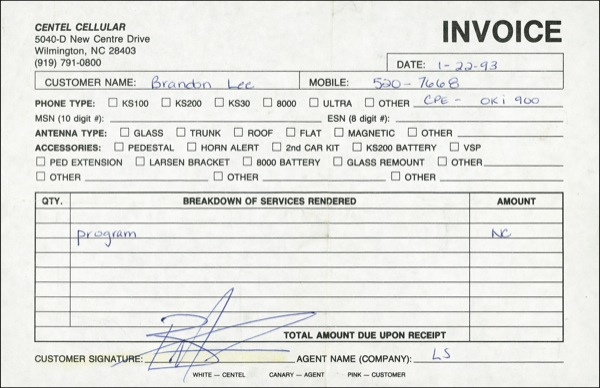 CENTEL CELLULAR
5040-D New Centre Drive
Wilmington, NC 28403
(919) 791-0800
INVOICE
DATE: 1-22-93
CUSTOMER NAME: Brandon Lee MOBILE: 520-7668
PHONE TYPE: ☐ KS100 ☐ KS200 ☐ KS30 ☐ 8000 ☐ ULTRA ☐ OTHER CPE - OKi 900
MSN (10 digit #): ESN (8 digit #):
ANTENNA TYPE: ☐ GLASS ☐ TRUNK ☐ ROOF ☐ FLAT ☐ MAGNETIC ☐ OTHER
ACCESSORIES: ☐ PEDESTAL ☐ HORN ALERT ☐ 2nd CAR KIT ☐ KS200 BATTERY ☐ VSP
☐ PED EXTENSION ☐ LARSEN BRACKET ☐ 8000 BATTERY ☐ GLASS REMOUNT ☐ OTHER
☐ OTHER ☐ OTHER ☐ OTHER
QTY. BREAKDOWN OF SERVICES RENDERED AMOUNT
program NC
TOTAL AMOUNT DUE UPON RECEIPT
CUSTOMER SIGNATURE: AGENT NAME (COMPANY): LS
WHITE — CENTEL CANARY — AGENT PINK — CUSTOMER